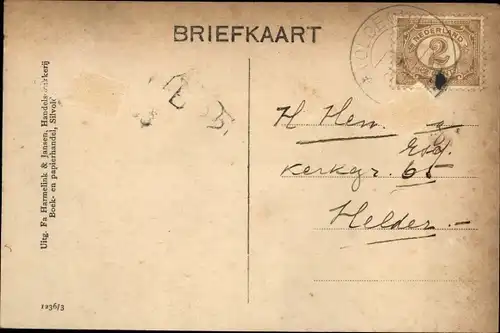 BRIEFKAART
NEDERLAND
2
H Hen.
Esq.
Kerkgr. 65
Helder.-
Uitg. Fa Harmelink & Jansen, Handelsdrukkerij
Boek- en papierhandel, Silvolde
1236/3